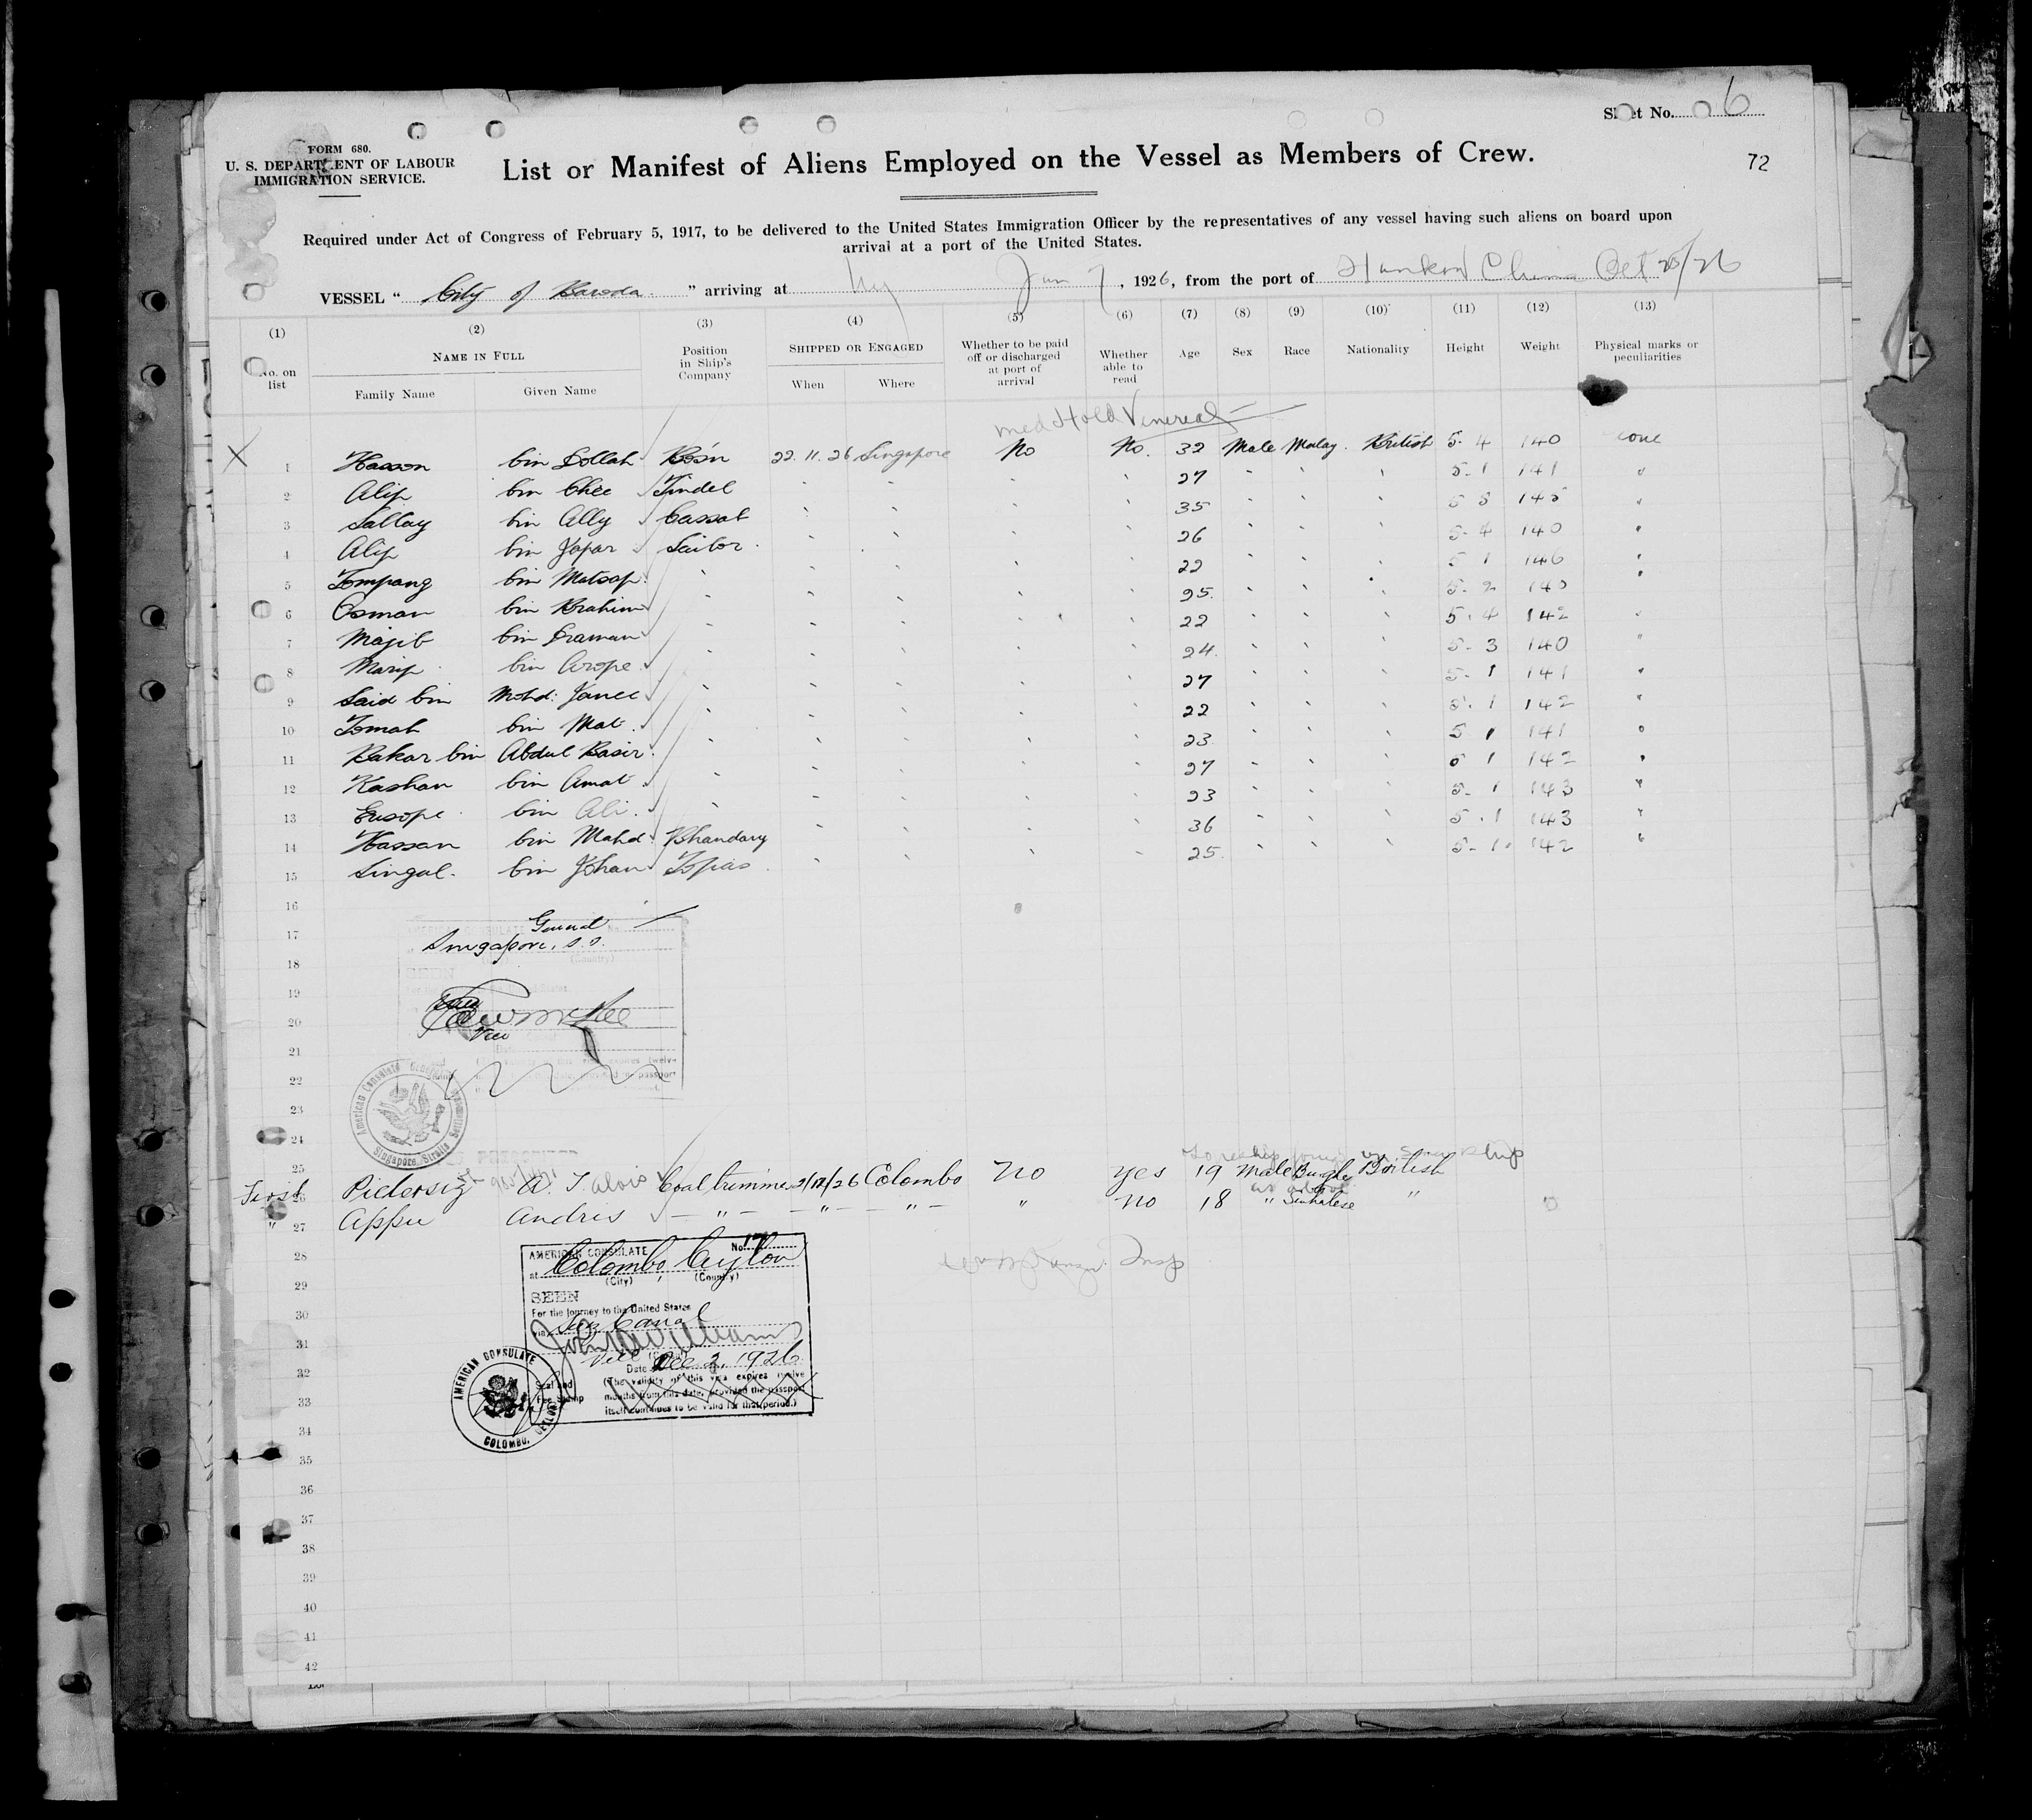 Sheet No. 6
FORM 680.
U. S. DEPARTMENT OF LABOUR
IMMIGRATION SERVICE.
List or Manifest of Aliens Employed on the Vessel as Members of Crew.
72
Required under Act of Congress of February 5, 1917, to be delivered to the United States Immigration Officer by the representatives of any vessel having such aliens on board upon
arrival at a port of the United States.
VESSEL “ City of Baroda ” arriving at Ny Jan 7, 1926, from the port of Hankow China Oct 25/26
(1) (2) (3) (4) (5) (6) (7) (8) (9) (10) (11) (12) (13)
No. on list NAME IN FULL Position in Ship's Company SHIPPED OR ENGAGED Whether to be paid off or discharged at port of arrival Whether able to read Age Sex Race Nationality Height Weight Physical marks or peculiarities
Family Name Given Name When Where
Med Hold Venereal
X 1 Hasson bin Dollah Bosn 22.11.26 Singapore No No. 32 Male Malay. British 5-4 140
2 Alip bin Chee Tindel " " " " 27 " " " 5-1 141 "
3 Sallay bin Ally Cassab " " " " 35 " " " 5 5 145 "
4 Alip bin Japar Sailor " " " " 26 " " " 5-4 140 "
5 Tompang bin Matsap " " " " " 22 " " " 5 1 146 "
6 Osman bin Brahim " " " " " 25 " " " 5-2 140 "
7 Majib bin Draman " " " " " 22 " " " 5.4 142 "
8 Marip bin Arope " " " " " 24 " " " 5-3 140 "
9 Said bin Mohd: Janee " " " " " 27 " " " 5-1 141 "
10 Tomah bin Mat " " " " " 22 " " " 5.1 142 "
11 Bakar bin Abdul Basir " " " " " 23 " " " 5 1 141 "
12 Kashan bin Amat " " " " " 27 " " " 5 1 142 "
13 Eusope bin Ali " " " " " 23 " " " 5-1 143 "
14 Hassan bin Mahd Bhandary " " " " 36 " " " 5.1 143 "
15 Singal bin Johan Topias " " " " 25 " " " 5-1 142 "
16
17 General
Singapore, S.S.
18
19
20
Vice
21
22
23
24
American Consulate General
Singapore, Straits Settlements
25
First 26 Pietersz A. T. Alois Coal trimmer 2/12/26 Colombo No Yes 19 Male British
" 27 Appu Andris " " " " No 18 " Sinhalese "
28
AMERICAN CONSULATE No. 17
at Colombo, Ceylon
(City) (Country)
29
SEEN
For the journey to the United States
30
via Suez Canal
31
Vice
32
Date Dec 2, 1926
(The validity of this visa expires twelve
months from this date, provided the passport
itself continues to be valid for that period.)
Seal and
Fee Stamp
AMERICAN CONSULATE
COLOMBO, CEYLON
33
34
35
36
37
38
39
40
41
42